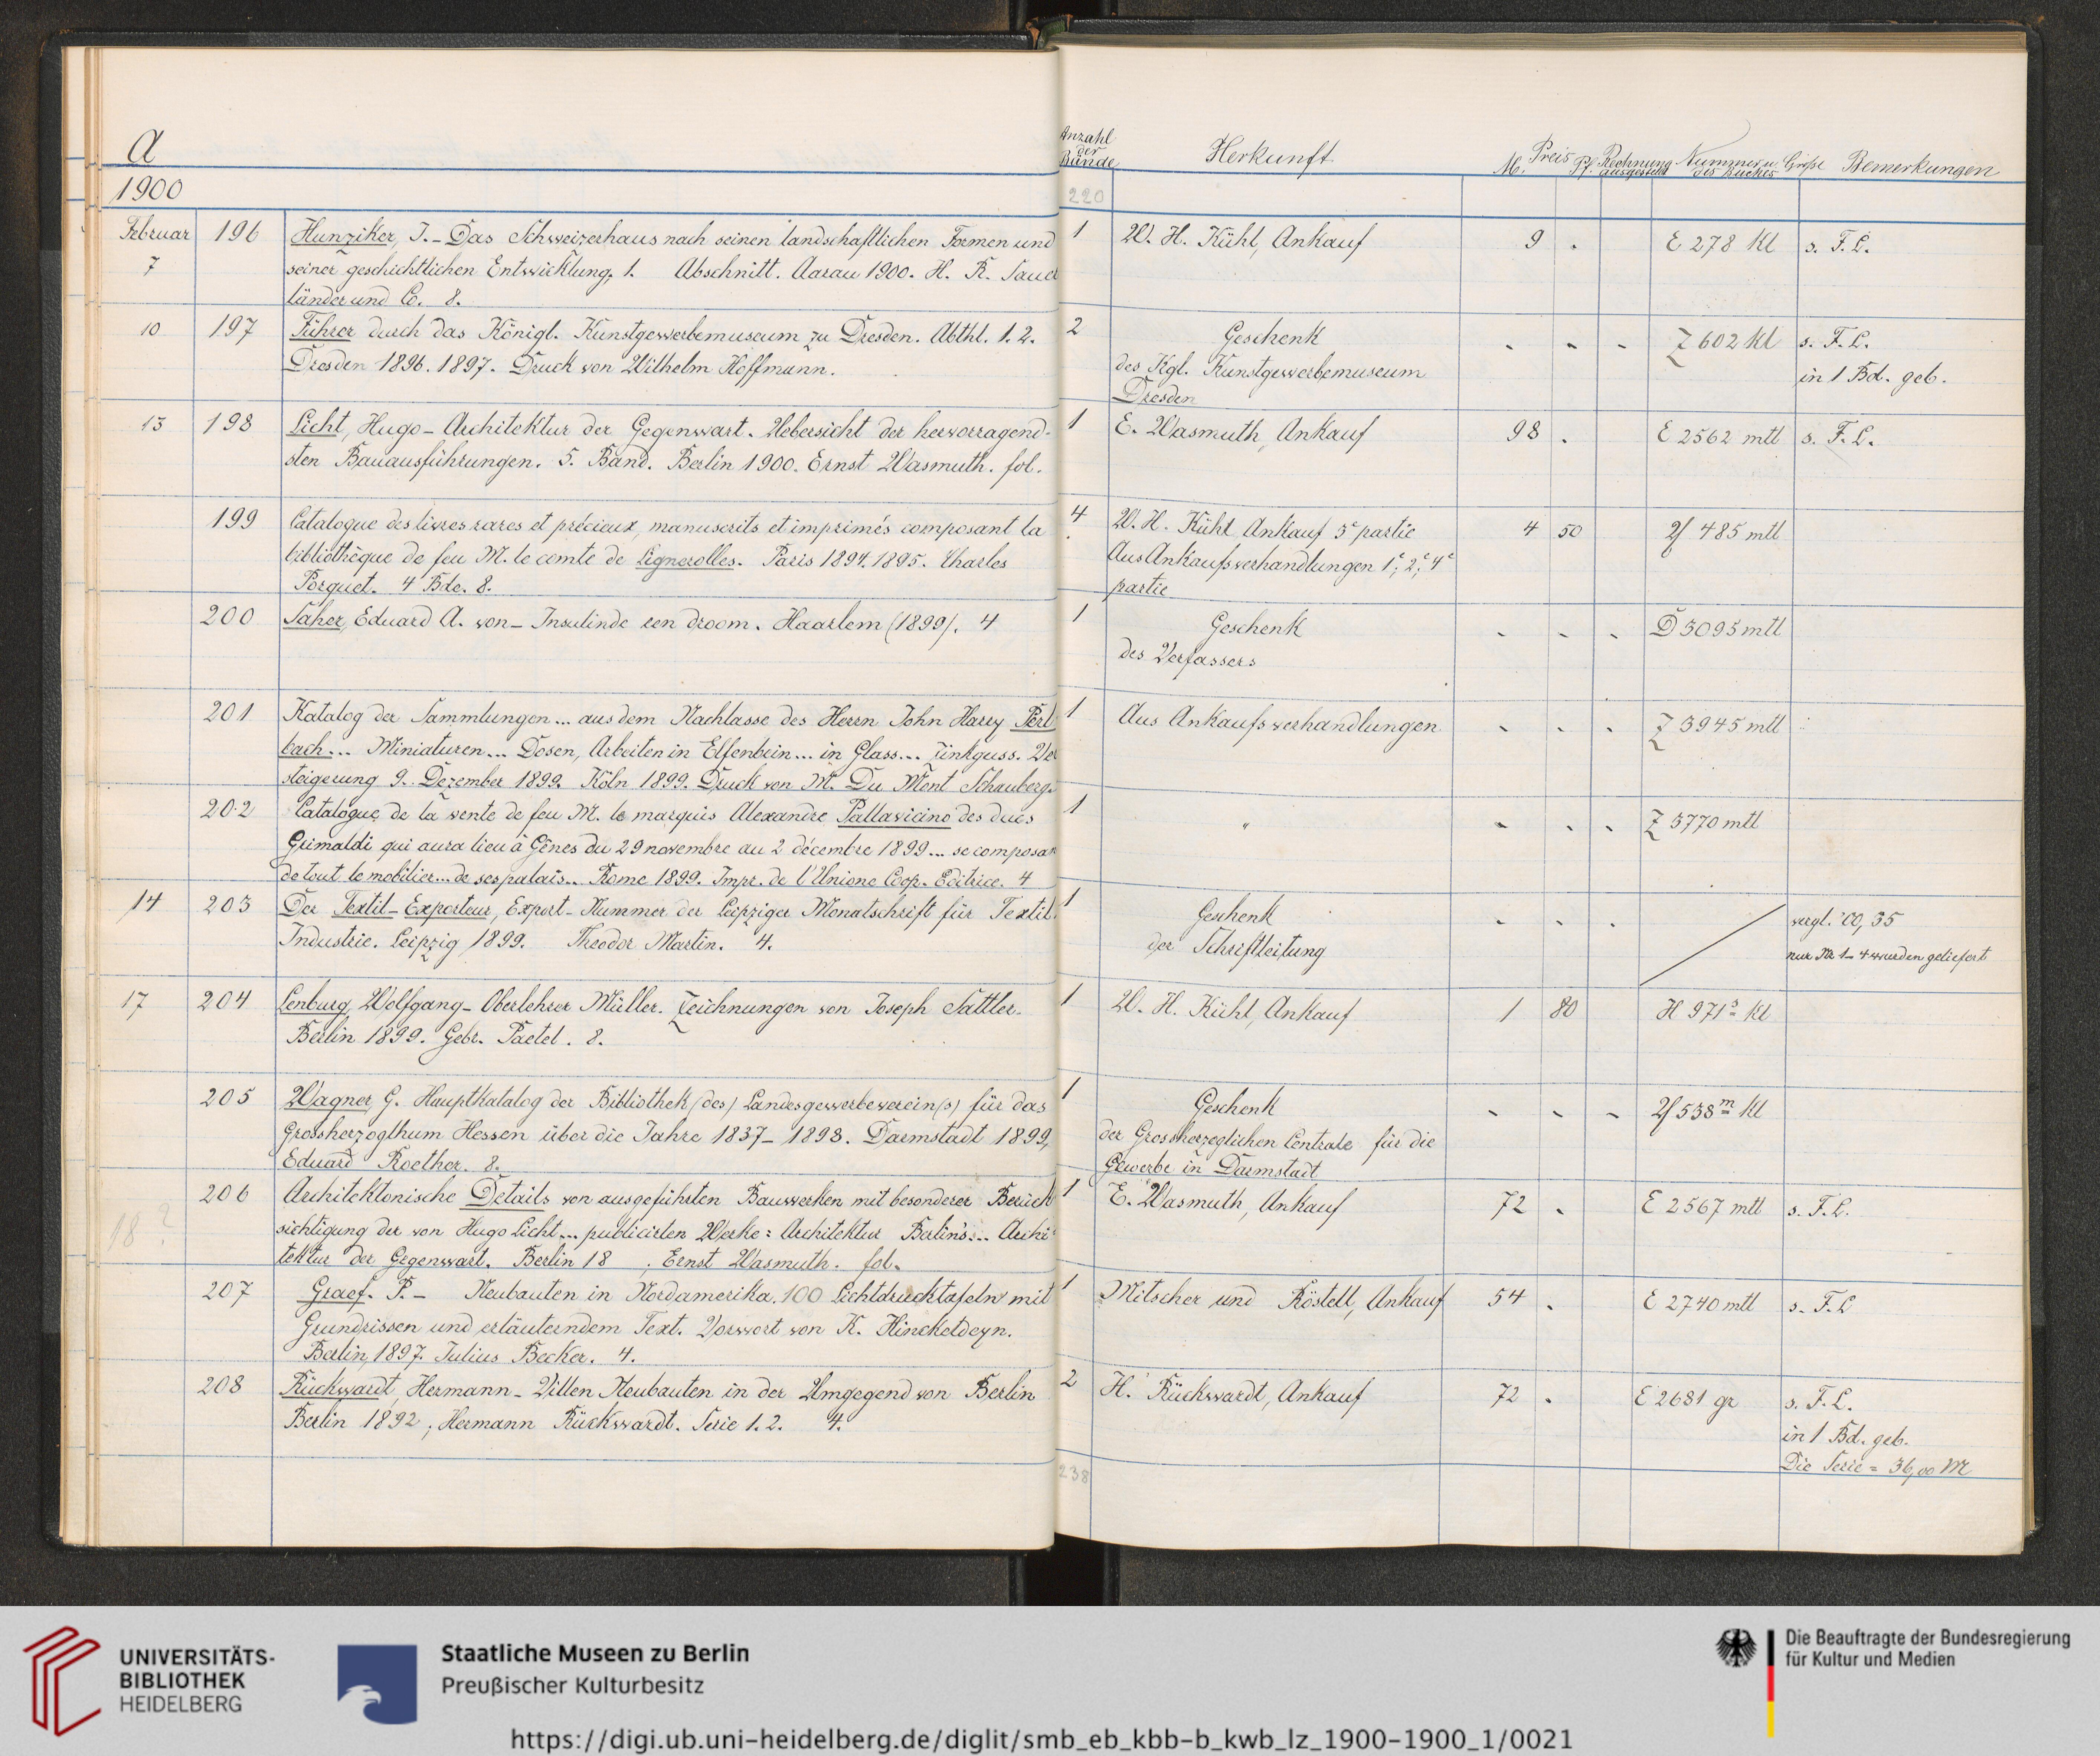 A
Anzahl der Bände
Herkunft
Preis
M. Pf.
Rechnung ausgestellt
Nummer u. Größe des Buches
Bemerkungen
1900
220
Februar 7
196
Hunziker, J. – Das Schweizerhaus nach seinen landschaftlichen Formen und
seiner geschichtlichen Entwicklung, 1. Abschnitt. Aarau 1900. H. R. Sauer
länder und Co. 8.
1
W. H. Kühl, Ankauf
9 .
E 278 Kl
s. F. L.
10
197
Führer durch das Königl. Kunstgewerbemuseum zu Dresden. Abthl. 1. 2.
Dresden 1896. 1897. Druck von Wilhelm Hoffmann.
2
Geschenk
des Kgl. Kunstgewerbemuseum
Dresden
- - -
Z 602 Kl
s. F. L.
in 1 Bd. geb.
13
198
Licht, Hugo – Architektur der Gegenwart. Uebersicht der hervorragend-
sten Bauausführungen. 5. Band. Berlin 1900. Ernst Wasmuth. fol.
1
E. Wasmuth, Ankauf
98 .
E 2562 mtl
s. F. L.
199
Catalogue des livres rares et précieux, manuscrits et imprimés composant la
bibliothèque de feu M. le comte de Lignerolles. Paris 1894. 1895. Charles
Porquet. 4 Bde. 8.
4
W. H. Kühl, Ankauf 3e partie
Aus Ankaufsverhandlungen 1e, 2e, 4e
partie
4 50
485 mtl
200
Saher, Eduard A. von – Insulinde een droom. Haarlem (1899). 4
1
Geschenk
des Verfassers
- - -
D 5095 mtl
201
Katalog der Sammlungen... aus dem Nachlasse des Herrn John Harry Perl
bach... Miniaturen... Dosen, Arbeiten in Elfenbein... in Glass... Zinkguss. Ver
steigerung 9. Dezember 1899. Köln 1899. Druck von M. Du Mont Schauberg.
1
Aus Ankaufsverhandlungen
- - -
Z 3945 mtl
202
Catalogue de la vente de feu M. le marquis Alexandre Pallavicino des ducs
Grimaldi qui aura lieu à Gênes du 29 novembre au 2 décembre 1899... se composan
de tout le mobilier... de ses palais... Rome 1899. Impr. de l'Unione Coop. Editrice. 4
1
"
- - -
Z 3770 mtl
14
203
Der Textil-Exporteur, Export-Nummer der Leipziger Monatschrift für Textil-
Industrie. Leipzig 1899. Theodor Martin. 4.
1
Geschenk
der Schriftleitung
- - -
vergl. 00, 35
nur Nr 1–4 wurden geliefert
17
204
Lenburg, Wolfgang – Oberlehrer Müller. Zeichnungen von Joseph Sattler.
Berlin 1899. Gebr. Paetel. 8.
1
W. H. Kühl, Ankauf
1 80
H 971a Kl
205
Wagner, G. Hauptkatalog der Bibliothek (des) Landesgewerbeverein(s) für das
Grossherzogthum Hessen über die Jahre 1837–1898. Darmstadt 1899,
Eduard Roether. 8.
1
Geschenk
der Grossherzoglichen Centrale für die
Gewerbe in Darmstadt
- - -
538m Kl
18?
206
Architektonische Details von ausgeführten Bauwerken mit besonderer Berück
sichtigung der von Hugo Licht... publicirten Werke: Architektur Berlin's... Archi
tektur der Gegenwart. Berlin 18 . Ernst Wasmuth. fol.
1
E. Wasmuth, Ankauf
72 .
E 2567 mtl
s. F. L.
207
Graef. P. – Neubauten in Nordamerika. 100 Lichtdrucktafeln mit
Grundrissen und erläuterndem Text. Vorwort von K. Hinckeldeyn.
Berlin, 1897. Julius Becker. 4.
1
Mitscher und Röstell, Ankauf
54 .
E 2740 mtl
s. F. L
208
Rückwardt, Hermann – Villen Neubauten in der Umgegend von Berlin
Berlin 1892, Hermann Rückwardt. Serie 1. 2. 4.
2
H. Rückwardt, Ankauf
72 .
E 2681 gr
s. F. L.
in 1 Bd. geb.
Die Serie = 36,00 M
238
UNIVERSITÄTS-
BIBLIOTHEK
HEIDELBERG
Staatliche Museen zu Berlin
Preußischer Kulturbesitz
Die Beauftragte der Bundesregierung
für Kultur und Medien
https://digi.ub.uni-heidelberg.de/diglit/smb_eb_kbb-b_kwb_lz_1900-1900_1/0021